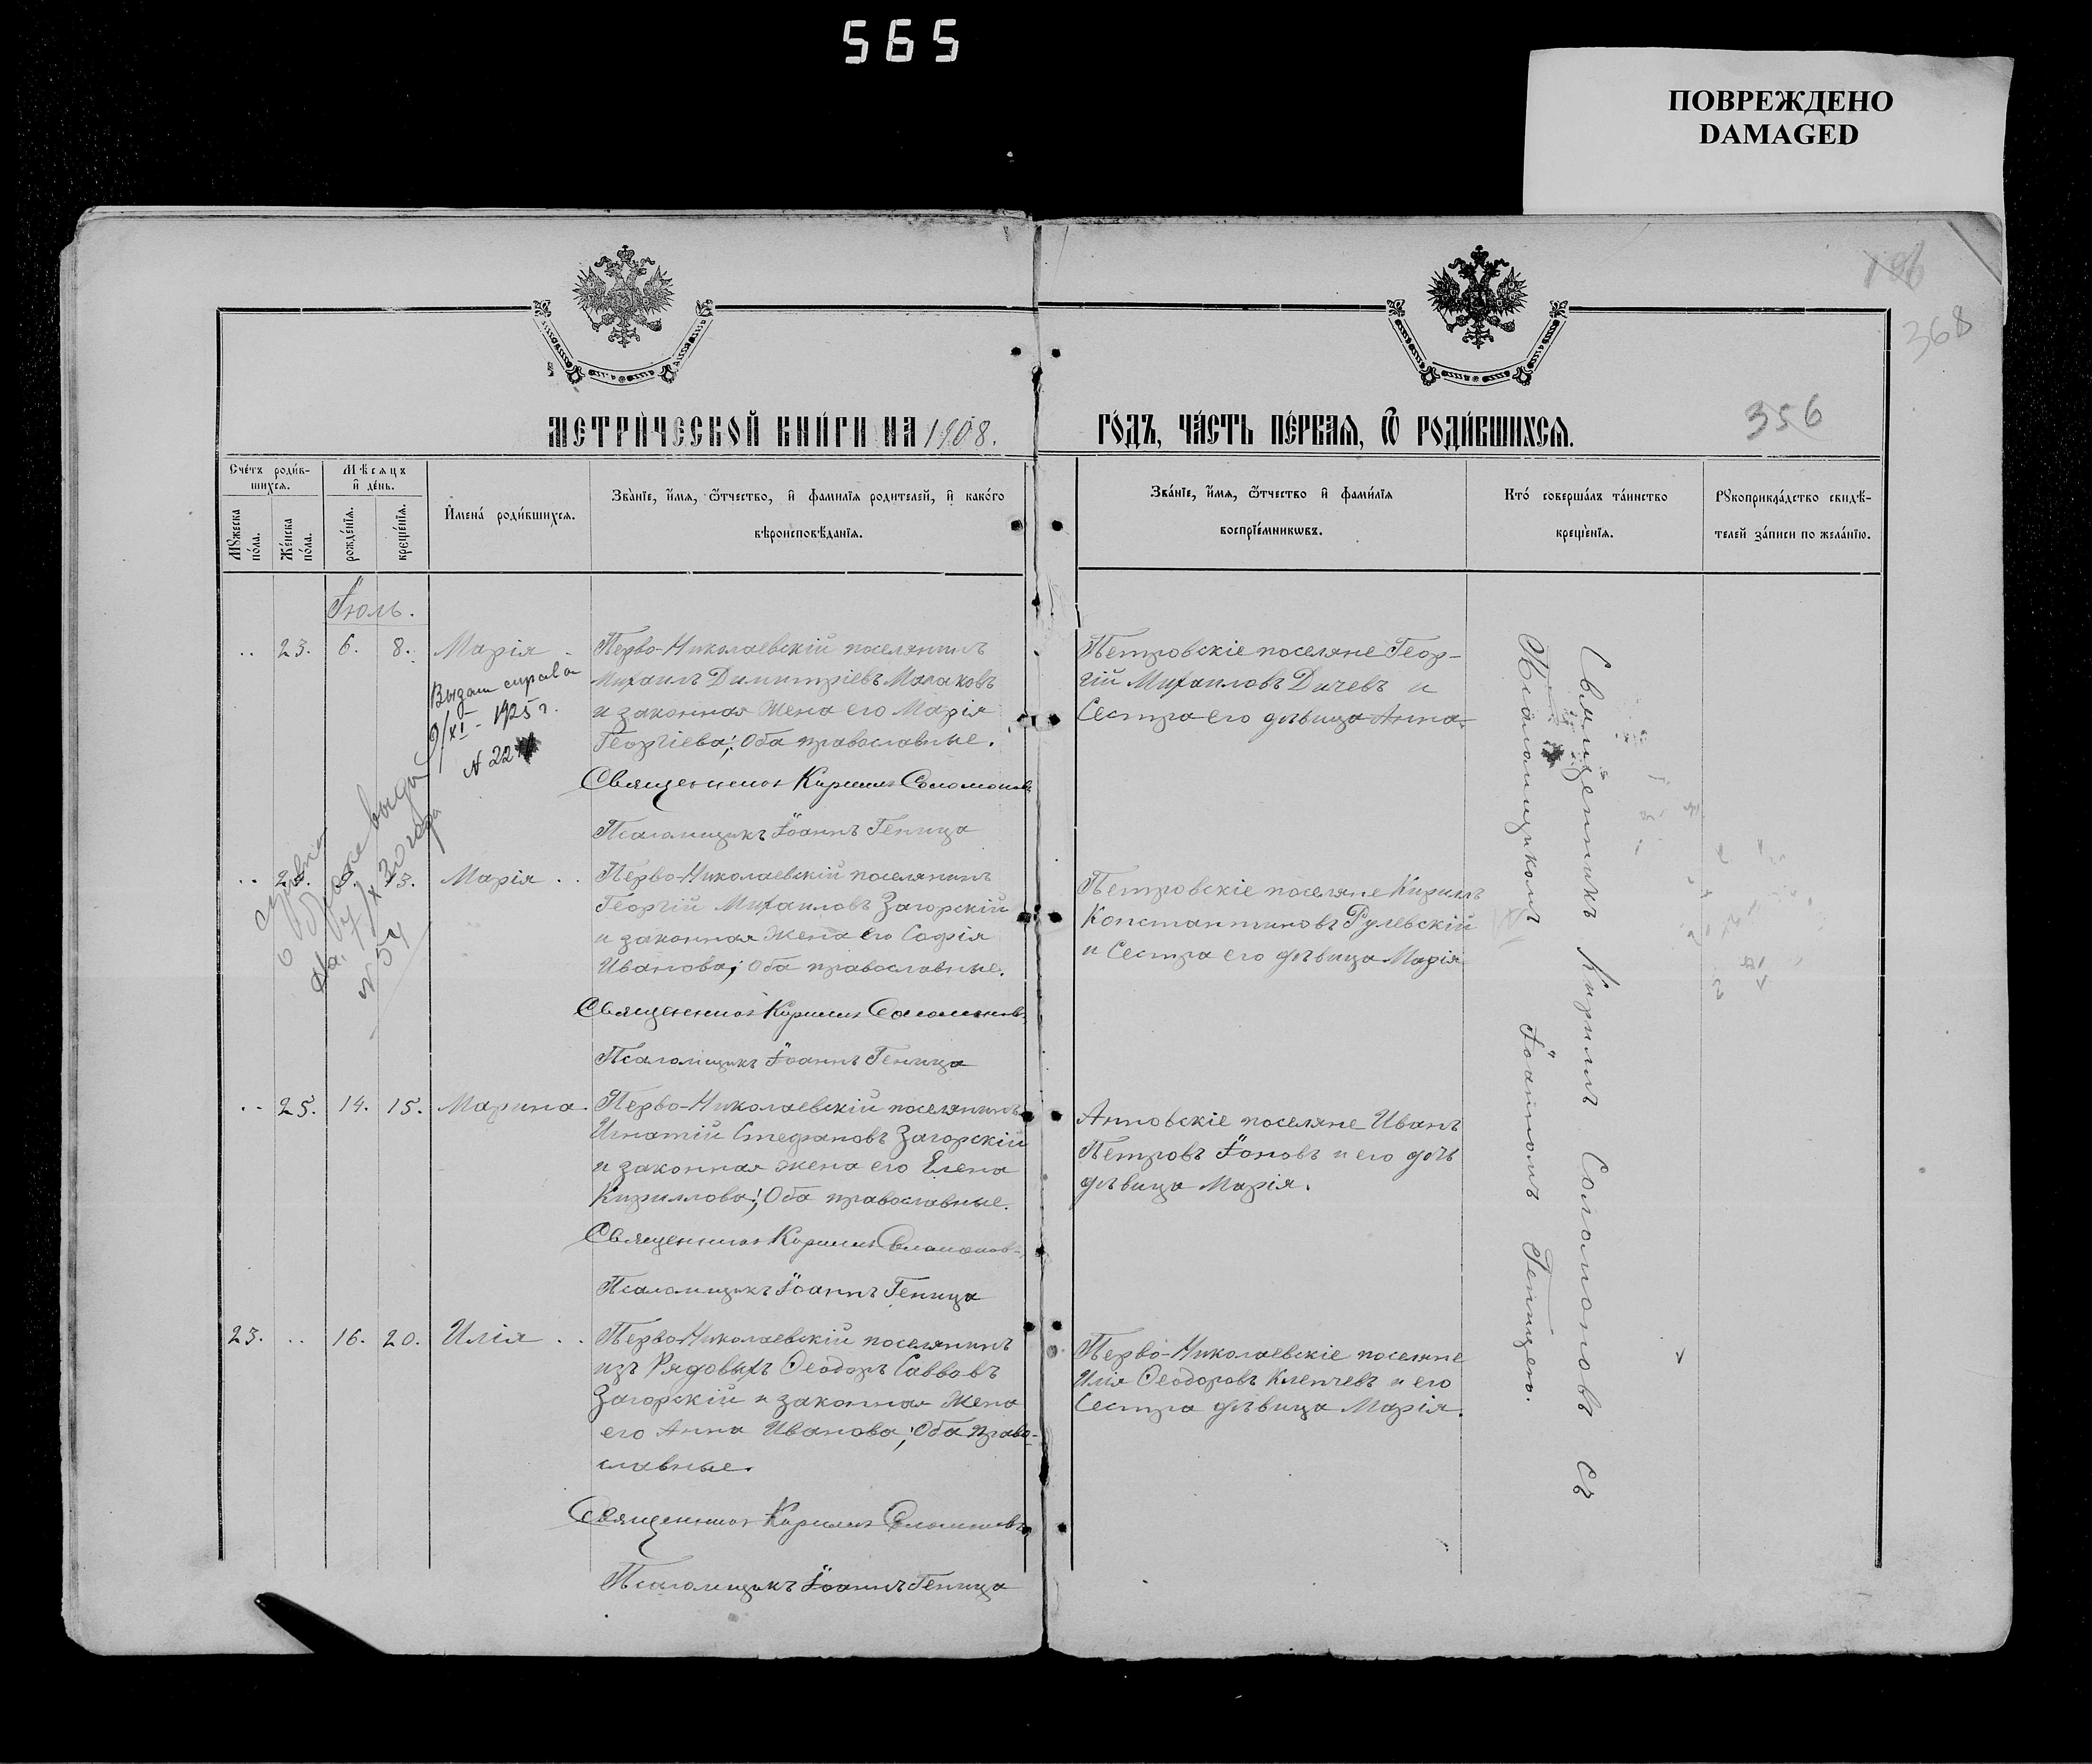 565
ПОВРЕЖДЕНО
DAMAGED
196
368
356
МЕТРИ́ЧЕСКОЙ КНИ́ГИ НА 1908.
ГО́ДЪ, ЧА́СТЬ ПЕ́РВАЯ, Ѿ РОДИ́ВШИХСЯ.
Сче́тъ роди́в-
шихся.
Мѣ́сяцъ
и де́нь.
Му́жеска
по́ла.
Же́нска
по́ла.
рожде́нїя.
креще́нїя.
Имена́ роди́вшихся.
Зва́нїе, и́мя, ѻ́тчество, и фами́лїя родителей, и како́го
вѣроисповѣ́данїя.
Зва́нїе, и́мя, ѻ́тчество и фами́лїя
воспрїе́мникωвъ.
Кто́ соверша́лъ та́инство
креще́нїя.
Рукоприкла́дство свидѣ́-
телей за́писи по жела́нїю.
Іюль.
.. 23. 6. 8. Марія .
Перво-Николаевскій поселянинъ
Михаилъ Димитріевъ Малаковъ
и законная жена его Марія
Георгіева; Оба православные.
Священникъ Кириллъ Соломоновъ
Псаломщикъ Іоаннъ Геница
Петровскіе поселяне Геор-
гій Михаиловъ Дичевъ и
Сестра его дѣвица Анна.
Выдана справка
9/XI - 1925 г.
N 22
справка
о браке выдана
17/X 30 года
N 54
.. 24. 9. 13. Марія . .
Перво-Николаевскій поселянинъ
Георгій Михаиловъ Загорскій
и законная жена его Софія
Иванова; Оба православные.
Священникъ Кириллъ Соломоновъ
Псаломщикъ Іоаннъ Геница
Петровскіе поселяне Кириллъ
Константиновъ Рулевскій
и Сестра его дѣвица Марія.
.. 25. 14. 15. Марина.
Перво-Николаевскій поселянинъ
Игнатій Стефановъ Загорскій
и законная жена его Елена
Кириллова; Оба православные.
Священникъ Кириллъ Соломоновъ
Псаломщикъ Іоаннъ Геница
Анновскіе поселяне Иванъ
Петровъ Іоновъ и его дочь
дѣвица Марія.
23. .. 16. 20. Илія . .
Перво-Николаевскій поселянинъ
изъ Рядовыхъ Ѳеодоръ Савовъ
Загорскій и законная жена
его Анна Иванова; Оба право-
славные.
Священникъ Кириллъ Соломоновъ
Псаломщикъ Іоаннъ Геница
Перво-Николаевскіе поселяне
Илія Ѳеодоровъ Кленчевъ и его
Сестра дѣвица Марія.
Священникъ Кириллъ Соломоновъ съ
Псаломщикомъ Іоанномъ Геницею.